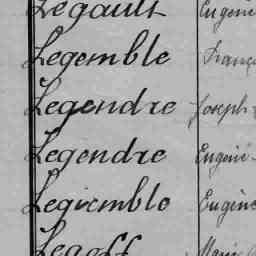 Legault Eugène
Legemble Franç
Legendre Joseph
Legendre Eugène
Legiemblo Eugène
Legoff Marie